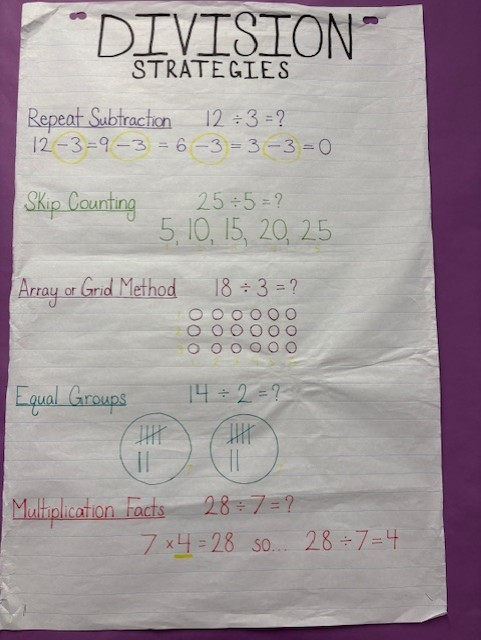 DIVISION
STRATEGIES
Repeat Subtraction 12 ÷ 3 = ?
12 - 3 = 9 - 3 = 6 - 3 = 3 - 3 = 0
Skip Counting 25 ÷ 5 = ?
5, 10, 15, 20, 25
Array or Grid Method 18 ÷ 3 = ?
Equal Groups 14 ÷ 2 = ?
Multiplication Facts 28 ÷ 7 = ?
7 × 4 = 28 so... 28 ÷ 7 = 4